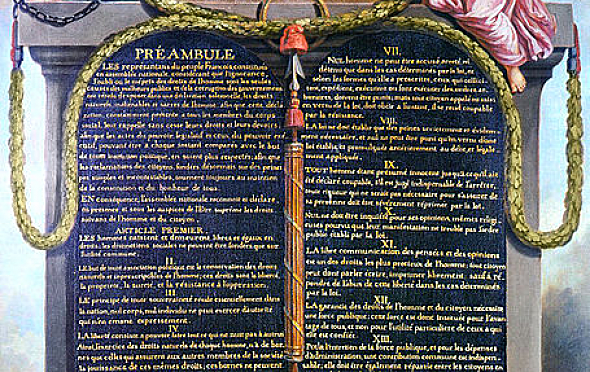 PRÉAMBULE
LES représentans du peuple François, constitués
en assemblée nationale, considérant que l'ignorance,
l'oubli ou le mépris des droits de l'homme sont les seules
causes des malheurs publics et de la corruption des gouvernemens
ont résolu d'exposer dans une déclaration solemnelle, les droits
naturels, inaliénables et sacrés de l'homme: afin que cette décla-
ration, constamment présente à tous les membres du corps
social, leur rappelle sans cesse leurs droits et leurs devoirs;
afin que les actes du pouvoir législatif et ceux du pouvoir exé-
cutif, pouvant être à chaque instant comparés avec le but
de toute institution politique, en soient plus respectés; afin que
les réclamations des citoyens, fondées désormais sur des princi-
pes simples et incontestables, tournent toujours au maintien
de la constitution et du bonheur de tous.
EN conséquence, l'assemblée nationale reconnoit et déclare,
en présence et sous les auspices de l'Être suprême les droits
suivans de l'homme et du citoyen.
ARTICLE PREMIER.
LES hommes naissent et demeurent libres et égaux en
droits; les distinctions sociales ne peuvent être fondées que sur
l'utilité commune.
II.
LE but de toute association politique est la conservation des droits
naturels et imprescriptibles de l'homme; ces droits sont la liberté,
la propriété, la sureté, et la résistance à l'oppression.
III.
LE principe de toute souveraineté réside essentiellement dans
la nation, nul corps, nul individu ne peut exercer d'autorité
qui n'en émane expressement.
IV.
LA liberté consiste à pouvoir faire tout ce qui ne nuit pas à autrui
Ainsi, l'exercice des droits naturels de chaque homme, n'a de bor-
nes que celles qui assurent aux autres membres de la société
la jouissance de ces mêmes droits; ces bornes ne peuvent
VII.
NUL homme ne peut être accusé, arrêté, ni
détenu que dans les cas déterminés par la loi, et
selon les formes qu'elle a prescrites, ceux qui sollici-
tent, expédient, exécutent ou font exécuter des ordres ar-
bitraires, doivent être punis; mais tout citoyen appelé ou saisi
en vertu de la loi, doit obéir à l'instant, il se rend coupable
par la résistance.
VIII.
LA loi ne doit établir que des peines strictement et évidem-
ment nécessaire, et nul ne peut être puni qu'en vertu d'une
loi établie et promulguée antérieurement au délit, et légale-
ment appliquée.
IX.
TOUT homme étant présumé innocent jusqu'à ce qu'il ait
été déclaré coupable, s'il est jugé indispensable de l'arrêter,
toute rigueur qui ne serait pas nécessaire pour s'assurer de
sa personne doit être sévèrement réprimée par la loi.
X.
NUL ne doit être inquiété pour ses opinions, mêmes religi-
euses pourvu que leur manifestation ne trouble pas l'ordre
public établi par la loi.
XI.
LA libre communication des pensées et des opinions
est un des droits les plus précieux de l'homme; tout citoyen
peut donc parler écrire, imprimer librement; sauf à ré-
pondre de l'abus de cette liberté dans les cas déterminés
par la loi.
XII.
LA garantie des droits de l'homme et du citoyen nécessite
une force publique; cette force est donc instituée pour l'avan-
tage de tous, et non pour l'utilité particulière de ceux à qui
elle est confiée.
XIII.
Pour l'entretien de la force publique, et pour les dépenses
d'administration, une contribution commune est indispen-
sable; elle doit être également répartie entre les citoyens en